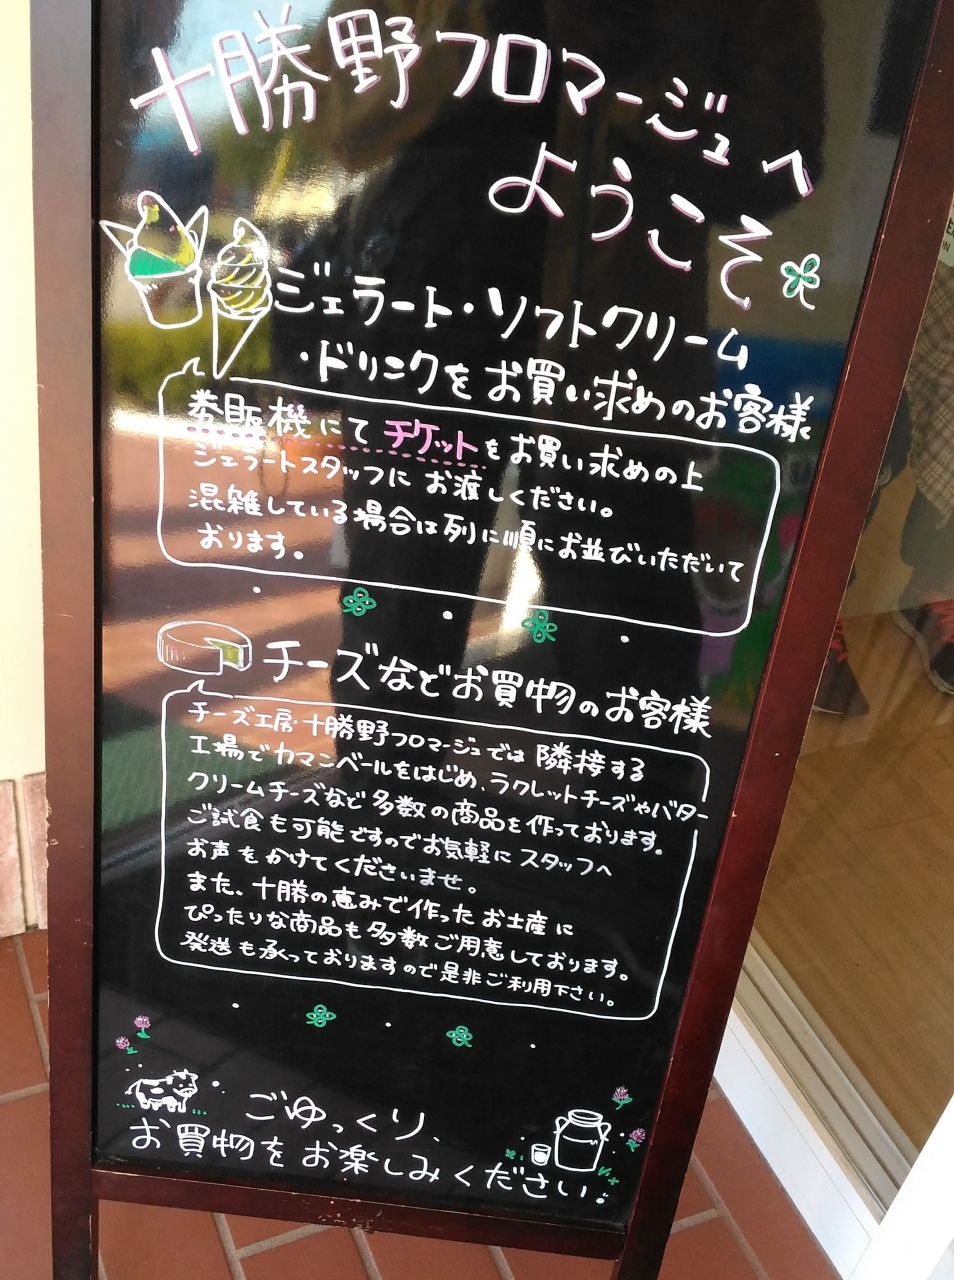 十勝野フロマージュへ
ようこそ
ジェラート・ソフトクリーム
・ドリンクをお買い求めのお客様
券販機にてチケットをお買い求めの上
ジェラートスタッフにお渡しください。
混雑している場合は列に順にお並びいただいて
おります。
チーズなどお買物のお客様
チーズ工房・十勝野フロマージュでは隣接する
工場でカマンベールをはじめ、ラクレットチーズやバター
クリームチーズなど多数の商品を作っております。
ご試食も可能ですのでお気軽にスタッフへ
お声をかけてくださいませ。
また、十勝の恵みで作ったお土産に
ぴったりな商品も多数ご用意しております。
発送も承っておりますので是非ご利用下さい。
ごゆっくり、
お買物をお楽しみください。